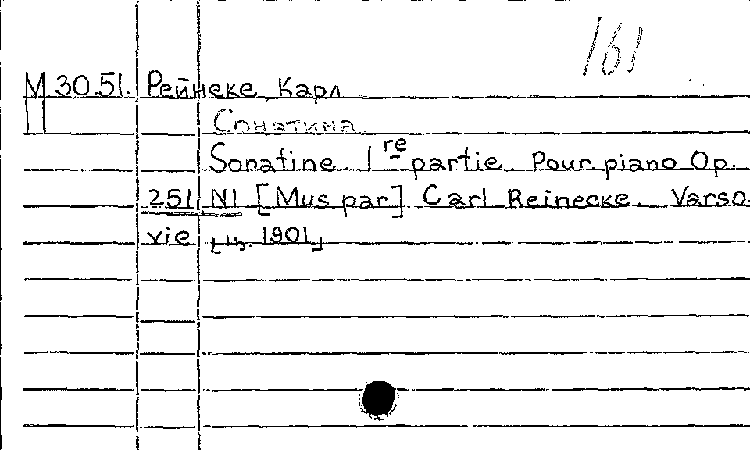 161
М 30.51. Рейнеке, Карл
II Сонатина
Sonatine. 1re partie. Pour piano Op.
251 N1 [Mus par] Carl Reinecke. Varso-
vie 1901